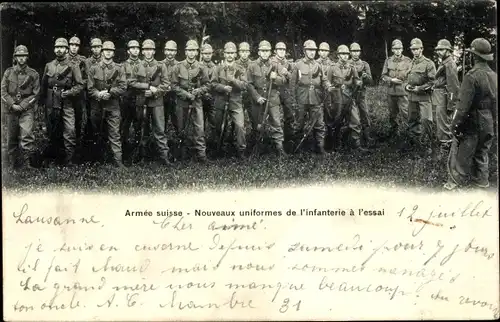 Armée suisse - Nouveaux uniformes de l'infanterie à l'essai
Lausanne 12 juillet
Cher aimé.
je suis en caserne depuis samedi pour 7 jours
il fait chaud mais nous sommes menagés
La grand mère nous manque beaucoup. Au revoir
ton oncle. A. C. Chambre 31